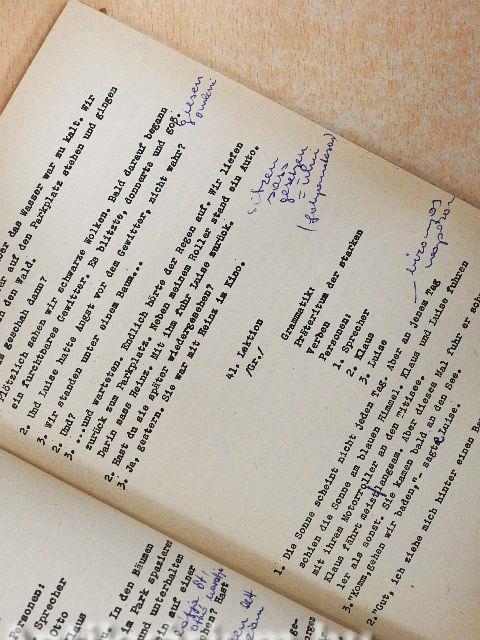 ber das Wasser war zu kalt. Wir
für auf den Parkplatz stehen und gingen
in den Wald.
as geschah dann?
Plötzlich sahen wir schwarze Wolken. Bald darauf begann
ein furchtbares Gewitter. Es blitzte, donnerte und gog.
2. Und Luise hatte Angst vor dem Gewitter, nicht wahr?
3. Wir standen unter einem Baum...
2. Und?
3. ...und warteten. Endlich hörte der Regen auf. Wir liefen
zurück zum Parkplatz. Neben meinem Roller stand ein Auto.
Darin sass Heinz. Mit ihm fuhr Luise zurück.
2. Hast du sie später wiedergesehen?
3. Ja, gestern. Sie war mit Heinz im Kino.
giesen
omleni
sitzen
sass
gesetzen
= ülni
41. Lektion
/Gr./
Grammatik:
Präteritum der starken
Verben
Personen:
1. Sprecher
2. Klaus
3. Luise
1. Die Sonne scheint nicht jeden Tag. Aber an jenem Tag
schien die Sonne am blauen Himmel. Klaus und Luise fuhren
mit ihrem Motorroller an den Titisee.
Klaus fährt meist langsam. Aber dieses Mal fuhr er sch
ler als sonst. Sie kamen bald an den See.
3. "Komm, gehen wir baden," sagte Luise.
2. "Gut, ich ziehe mich hinter einen Ba
Personen:
Sprecher
Otto
laus
u, in den Bäumen
im Park spaziere
und unterhalten
ein auf einer
hen? Hast